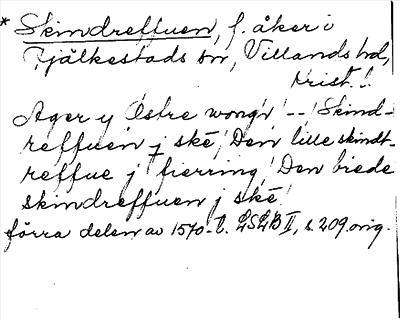 * Skindreffuen, f. åker i
Fjälkestads sn, Villands hd,
Krist. l.
"Ager y Östre wong" -- "Skind-
reffuen j ské", "Den lille skindt-
reffue j fierring", "Den brede
skindreffuen j ské"
förra delen av 1570-t. LSLB II, s. 209. orig.